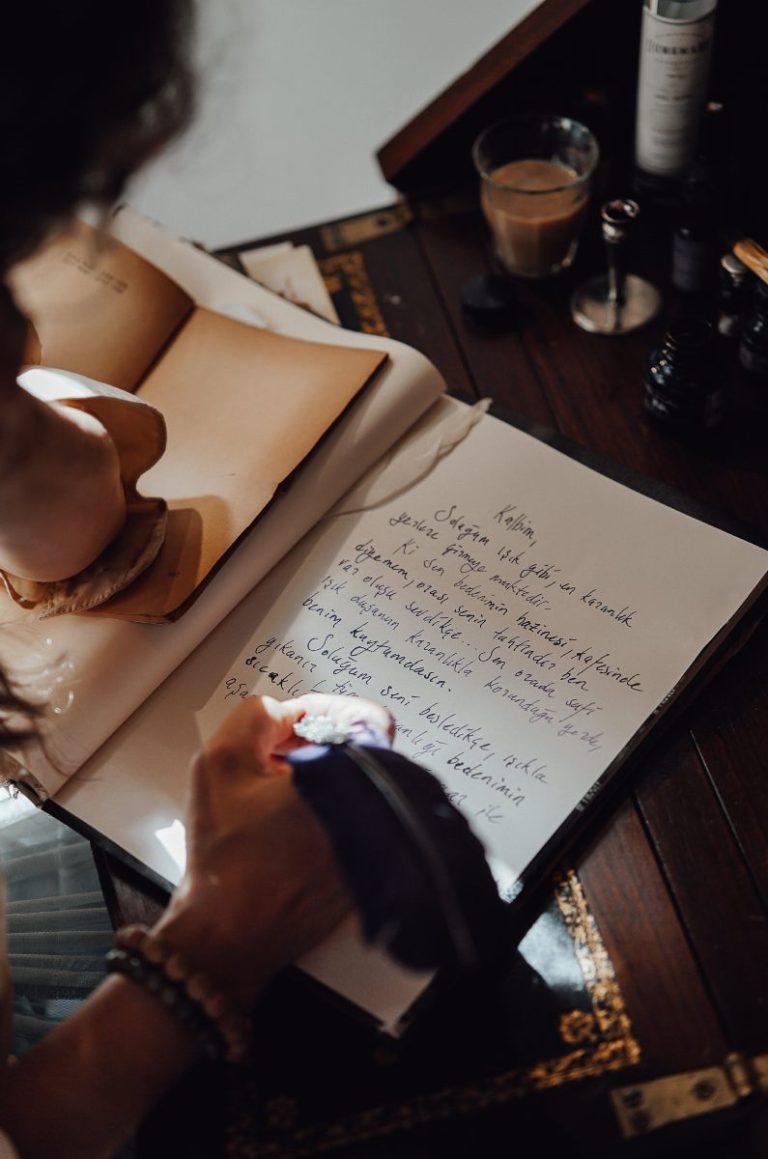 Kalbim,
Soluğum ışık gibi, en karanlık
yerlere girmeye muktedir.
Ki sen bedenimin hazinesi, kafesinde
diyemem, orası senin tahtındır ben
var oluşu sevdikçe... Sen orada safi
ışık düşenin karanlıkla korunduğu yerde,
benim kuytumdasın.
Soluğum seni besledikçe, ışıkla
yıkanır bedenimin
sıcaklı
ile